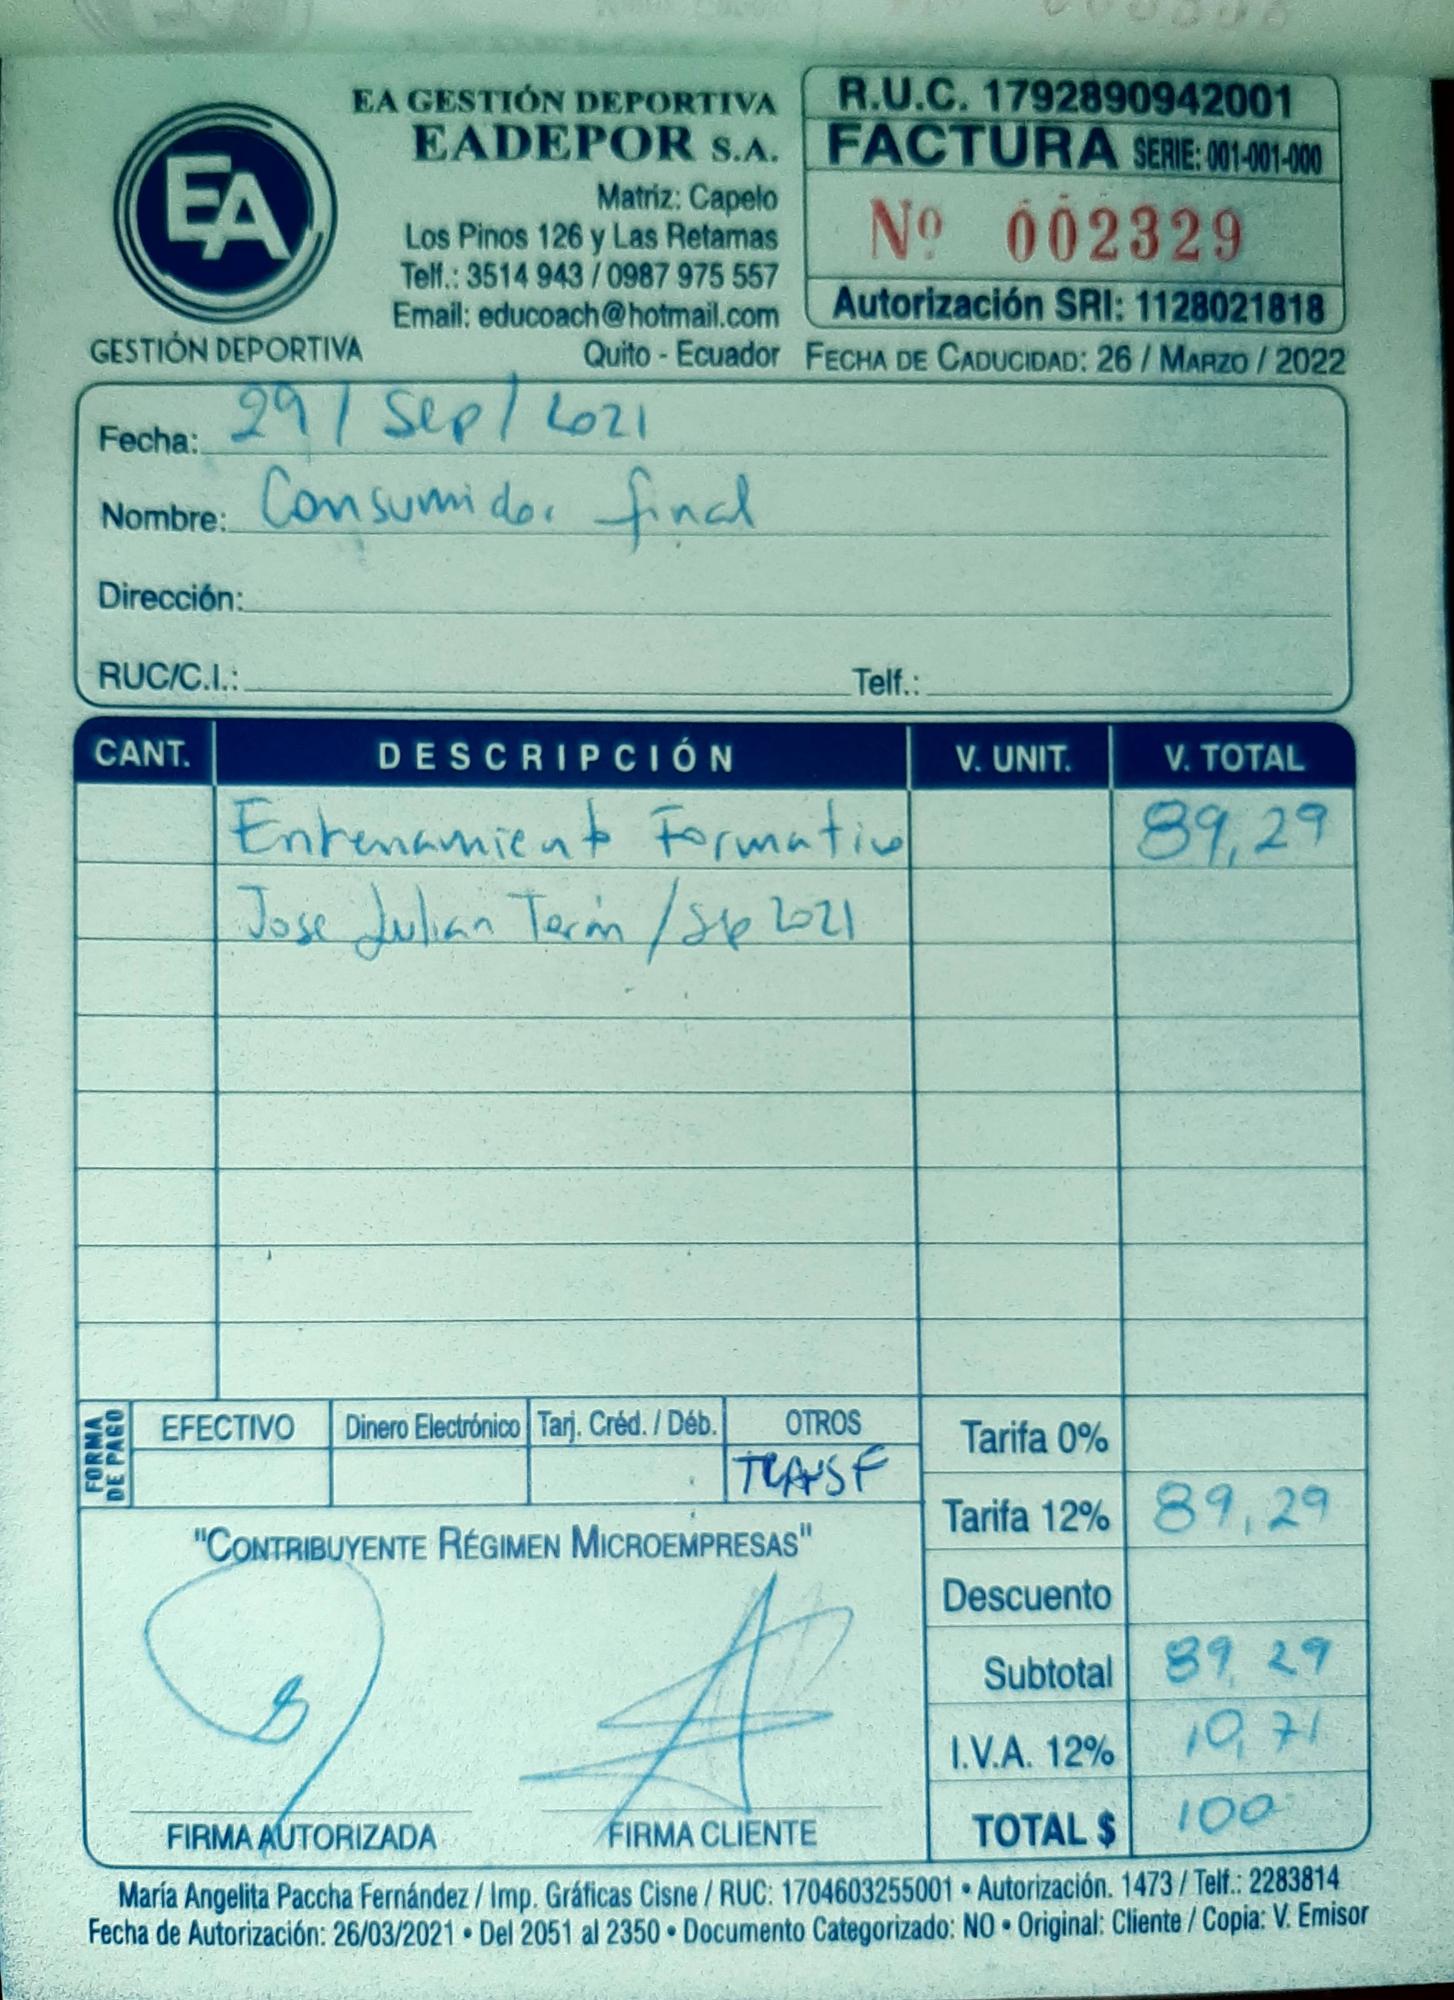 EA
GESTIÓN DEPORTIVA
EA GESTIÓN DEPORTIVA
EADEPOR S.A.
Matriz: Capelo
Los Pinos 126 y Las Retamas
Telf.: 3514 943 / 0987 975 557
Email: educoach@hotmail.com
Quito - Ecuador
R.U.C. 1792890942001
FACTURA SERIE: 001-001-000
Nº 002329
Autorización SRI: 1128021818
FECHA DE CADUCIDAD: 26 / MARZO / 2022
Fecha: 29 / Sep / 2021
Nombre: Consumidor final
Dirección:
RUC/C.I.: Telf.:
CANT. DESCRIPCIÓN V. UNIT. V. TOTAL
Entrenamiento Formativo 89,29
Jose Julian Terán / Sep 2021
FORMA DE PAGO
EFECTIVO Dinero Electrónico Tarj. Créd. / Déb. OTROS
TRANSF
Tarifa 0%
Tarifa 12% 89,29
Descuento
Subtotal 89,29
I.V.A. 12% 10,71
TOTAL $ 100
"CONTRIBUYENTE RÉGIMEN MICROEMPRESAS"
FIRMA AUTORIZADA FIRMA CLIENTE
María Angelita Paccha Fernández / Imp. Gráficas Cisne / RUC: 1704603255001 • Autorización. 1473 / Telf.: 2283814
Fecha de Autorización: 26/03/2021 • Del 2051 al 2350 • Documento Categorizado: NO • Original: Cliente / Copia: V. Emisor